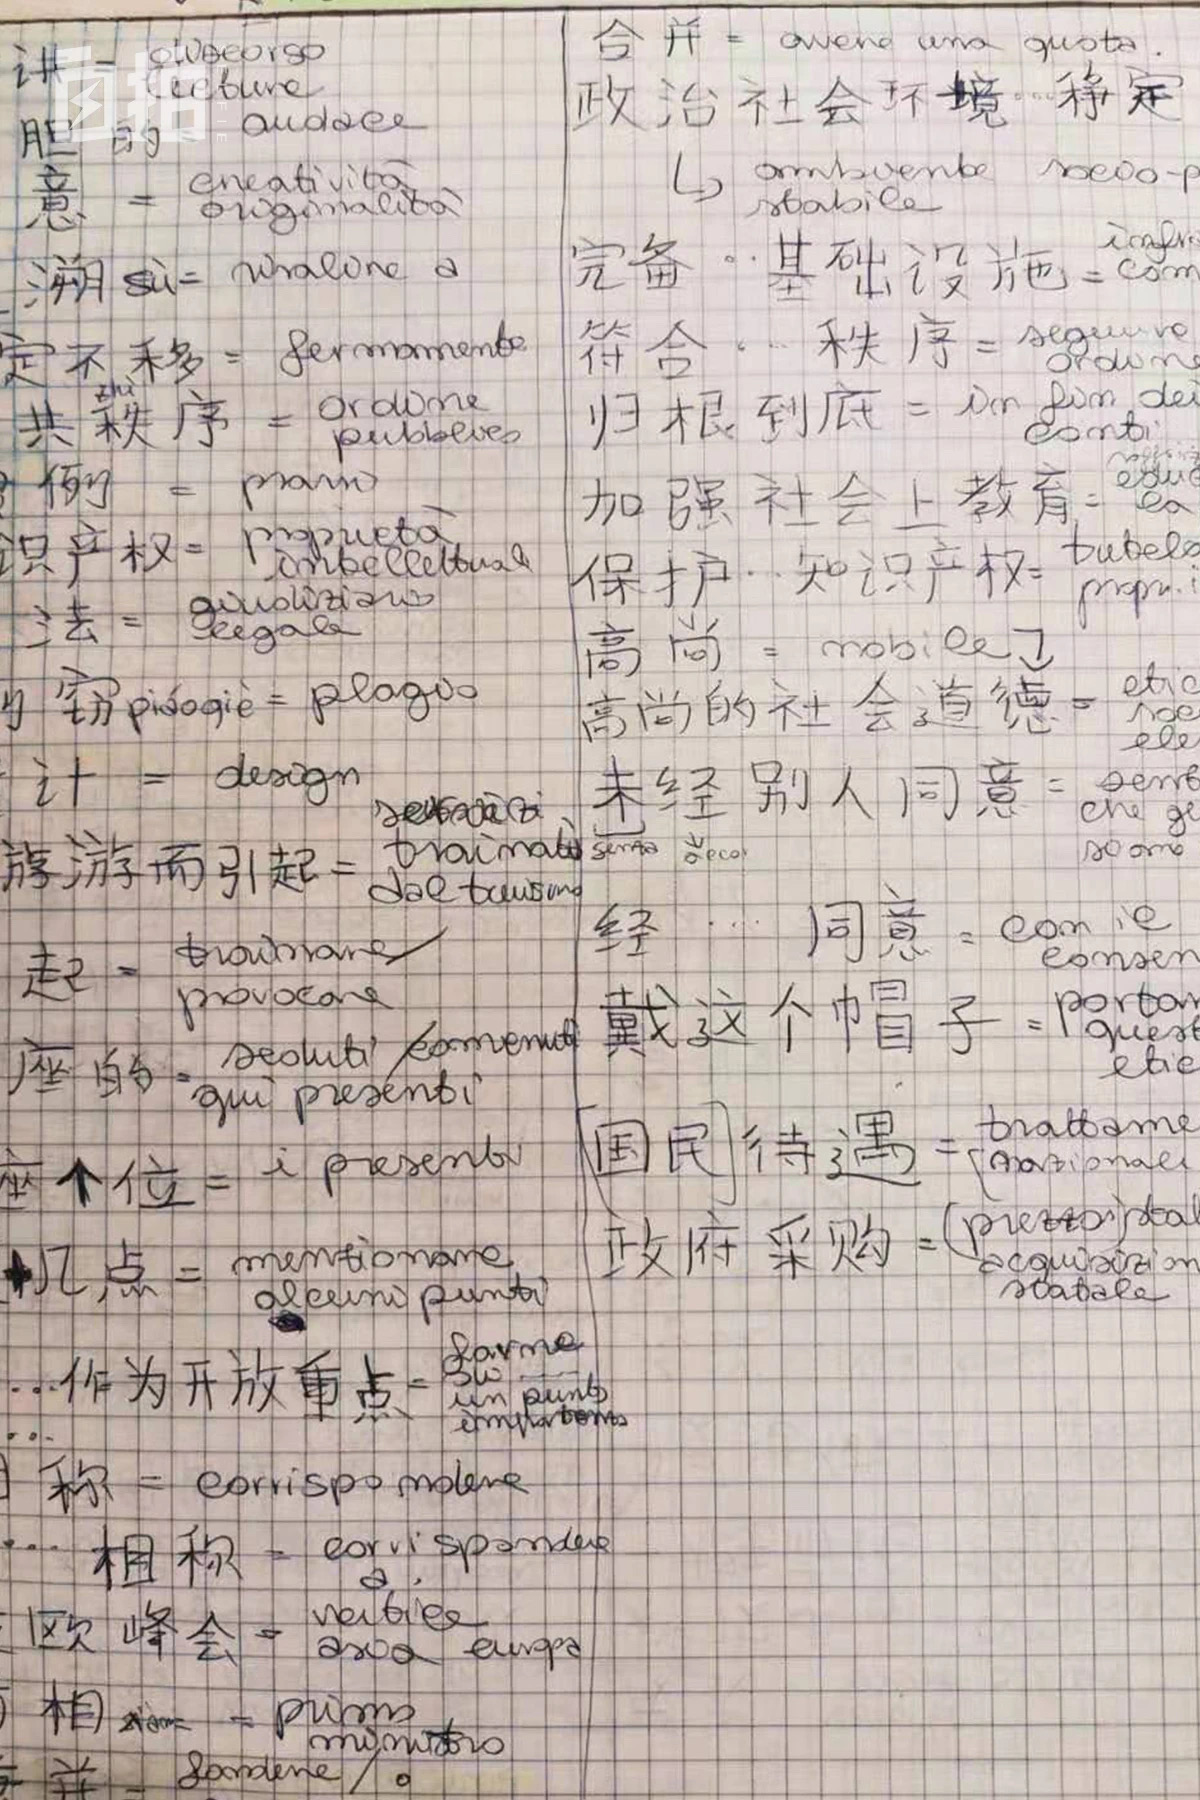 讲 = discorso
lecture
胆的 audace
意 = creatività
originalità
溯 sù = risalire a
定不移 = fermamente
共秩序 = ordine
zhì
pubblico
例 = prassi
识产权 = proprietà
intellettuale
法 = giudiziario
legale
窃 piāoqiè = plagio
计 = design
servizi
游而引起 = trainato
dal turismo
起 = trainare/
provocare
座的 = seduti/convenuti
qui presenti
座个位 = i presenti
几点 = menzionare
alcuni punti
...作为开放重点 = farne
su
un punto
importante
...
称 = corrispondere
... 相称 = corrispondere
a.
欧峰会 = vertice
asia europa
相 = primo
ministro
并 = fondere/
合并 = avere una quota.
政治社会环境...稳定
↳ ambiente socio-p
stabile
完备...基础设施 = infr
com
符合...秩序 = seguire
ordine
归根到底 = in fin dei
conti
加强社会上教育 = educ
la
保护...知识产权 = tutela
propr.i
高尚 = nobile
高尚的社会道德 = etic
soc
ele
未经别人同意 = senz
che gl
siano
senza
经...同意 = con il
consen
戴这个帽子 = portar
quest
etic
[国民]待遇 = trattame
(nazionale
政府采购 = (prezzo)stat
acquisizion
statale